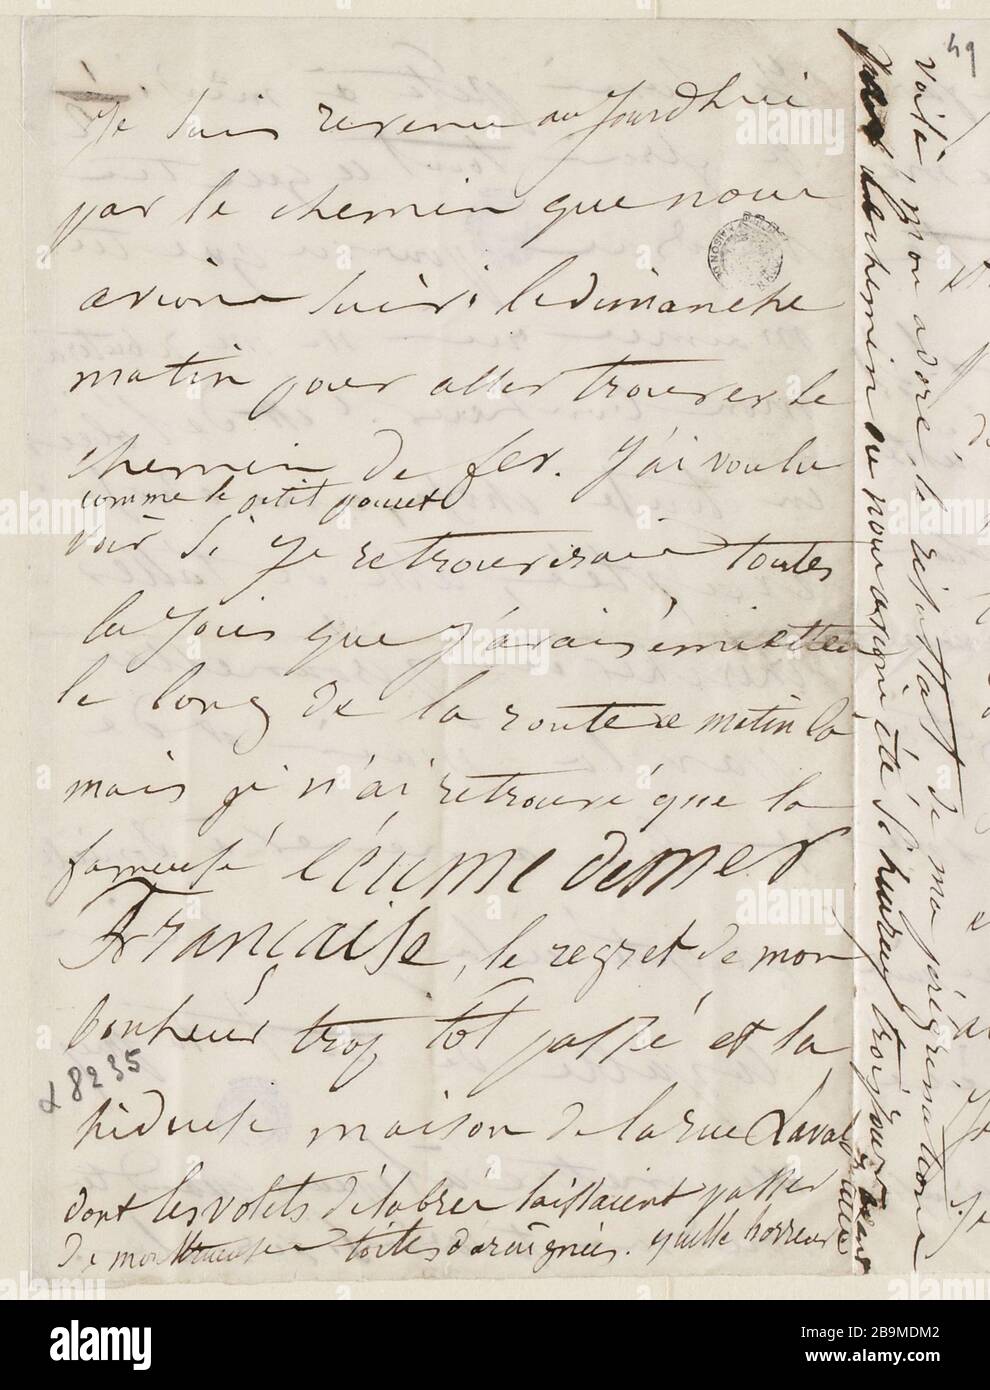 49
je suis revenu aujourdhui
par le chemin que nous
avions suivi le dimanche
matin pour aller trouver le
chemin de fer. J'ai voulu
comme le petit poucet
voir si je retrouverais toutes
les joies que j'avais émiettées
le long de la route ce matin là
mais je n'ai retrouvé que la
fameuse écume de mer
Française, le regret de mon
bonheur trop tôt passé et la
hideuse maison de la rue Laval
dont les volets délabrés laissaient passer
de monstrueuses toiles d'araignées. quelle horreur
α 8235
Voilà, mon adoré, le résultat de ma pérégrination
du chemin où nous avions été si heureux trois jours
MAISON
alamy
Image ID: 2B9MDM2
www.alamy.com